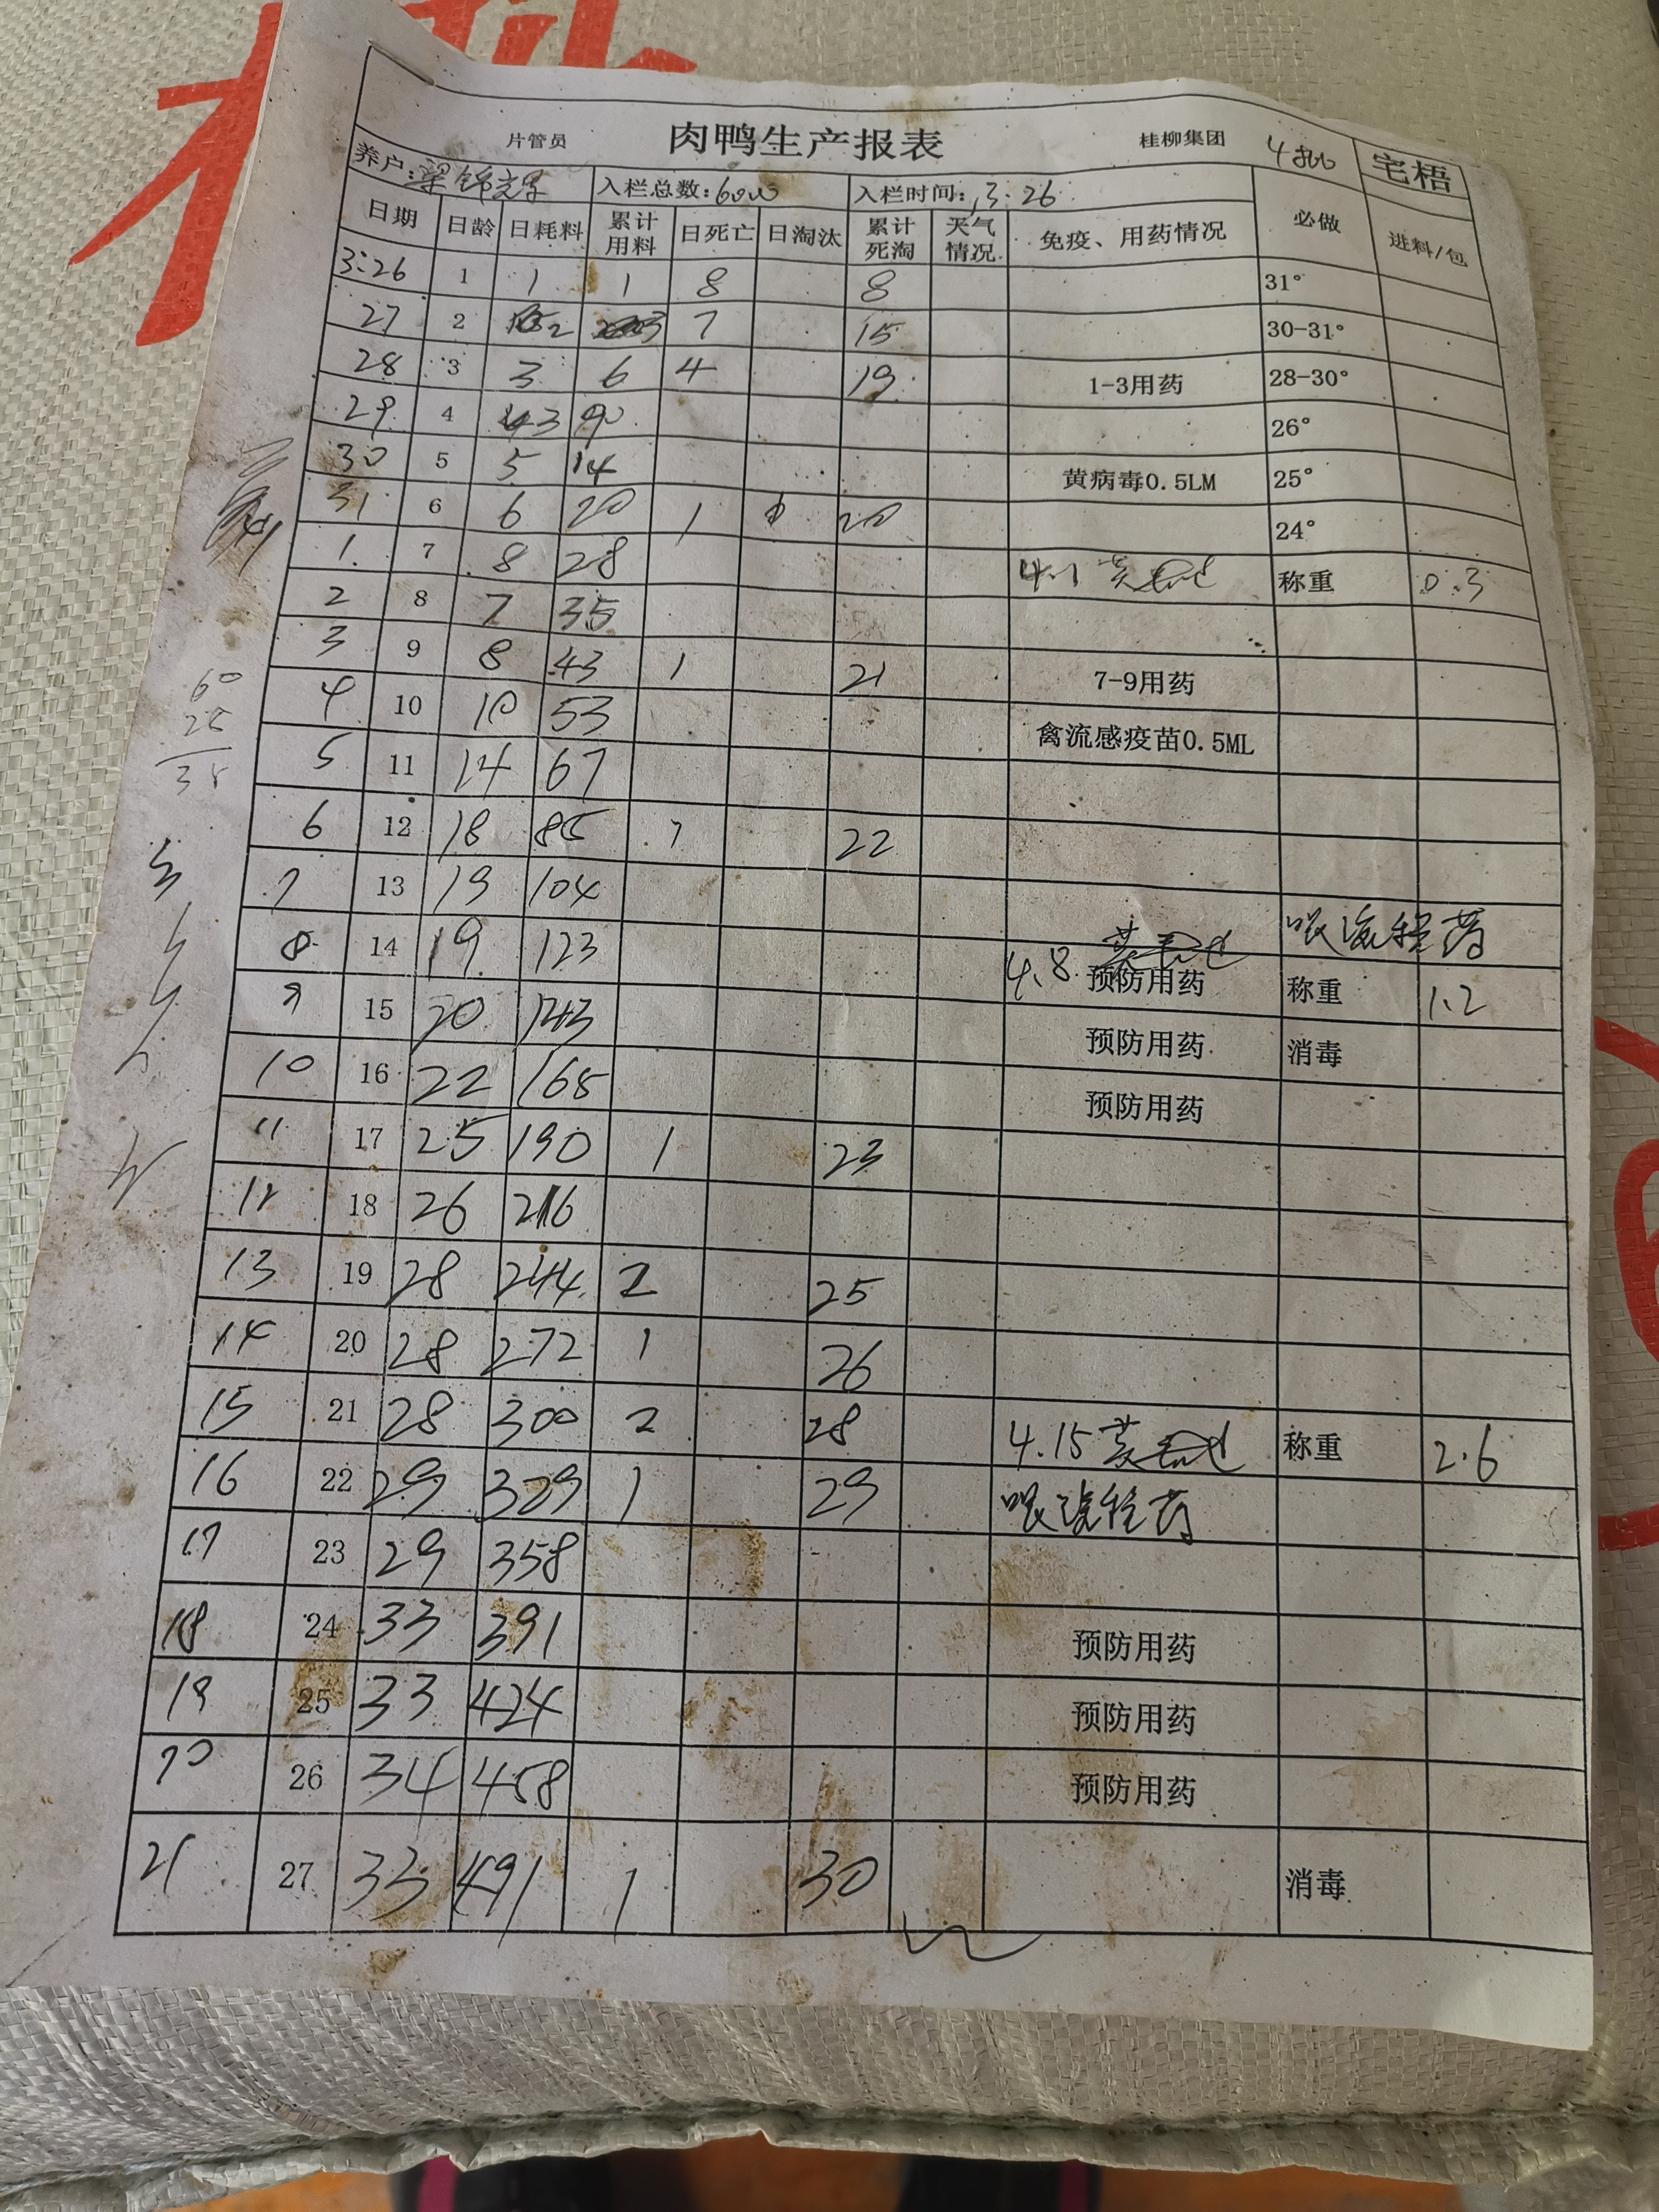 片管员 肉鸭生产报表 桂柳集团 4800 宅梧
养户: 入栏总数:6000 入栏时间:3.26
日期 日龄 日耗料 累计用料 日死亡 日淘汰 累计死淘 天气情况 免疫、用药情况 必做 进料/包
3.26 1 1 1 8 8 31°
27 2 2 3 7 15 30-31°
28 3 3 6 4 19 1-3用药 28-30°
29 4 3 9 26°
30 5 5 14 黄病毒0.5LM 25°
31 6 6 20 1 20 24°
1 7 8 28 4.1 称重 0.3
2 8 7 35
3 9 8 43 1 21 7-9用药
4 10 10 53 禽流感疫苗0.5ML
5 11 14 67
6 12 18 85 1 22
7 13 19 104
8 14 19 123 4.8 预防用药 称重 1.2
9 15 20 143 预防用药 消毒
10 16 22 165 预防用药
11 17 25 190 1 23
12 18 26 216
13 19 28 244 2 25
14 20 28 272 1 26
15 21 28 300 2 28 4.15 称重 2.6
16 22 29 329 1 29
17 23 29 358
18 24 33 391 预防用药
19 25 33 424 预防用药
20 26 34 458 预防用药
21 27 33 491 1 30 消毒
60
25
35